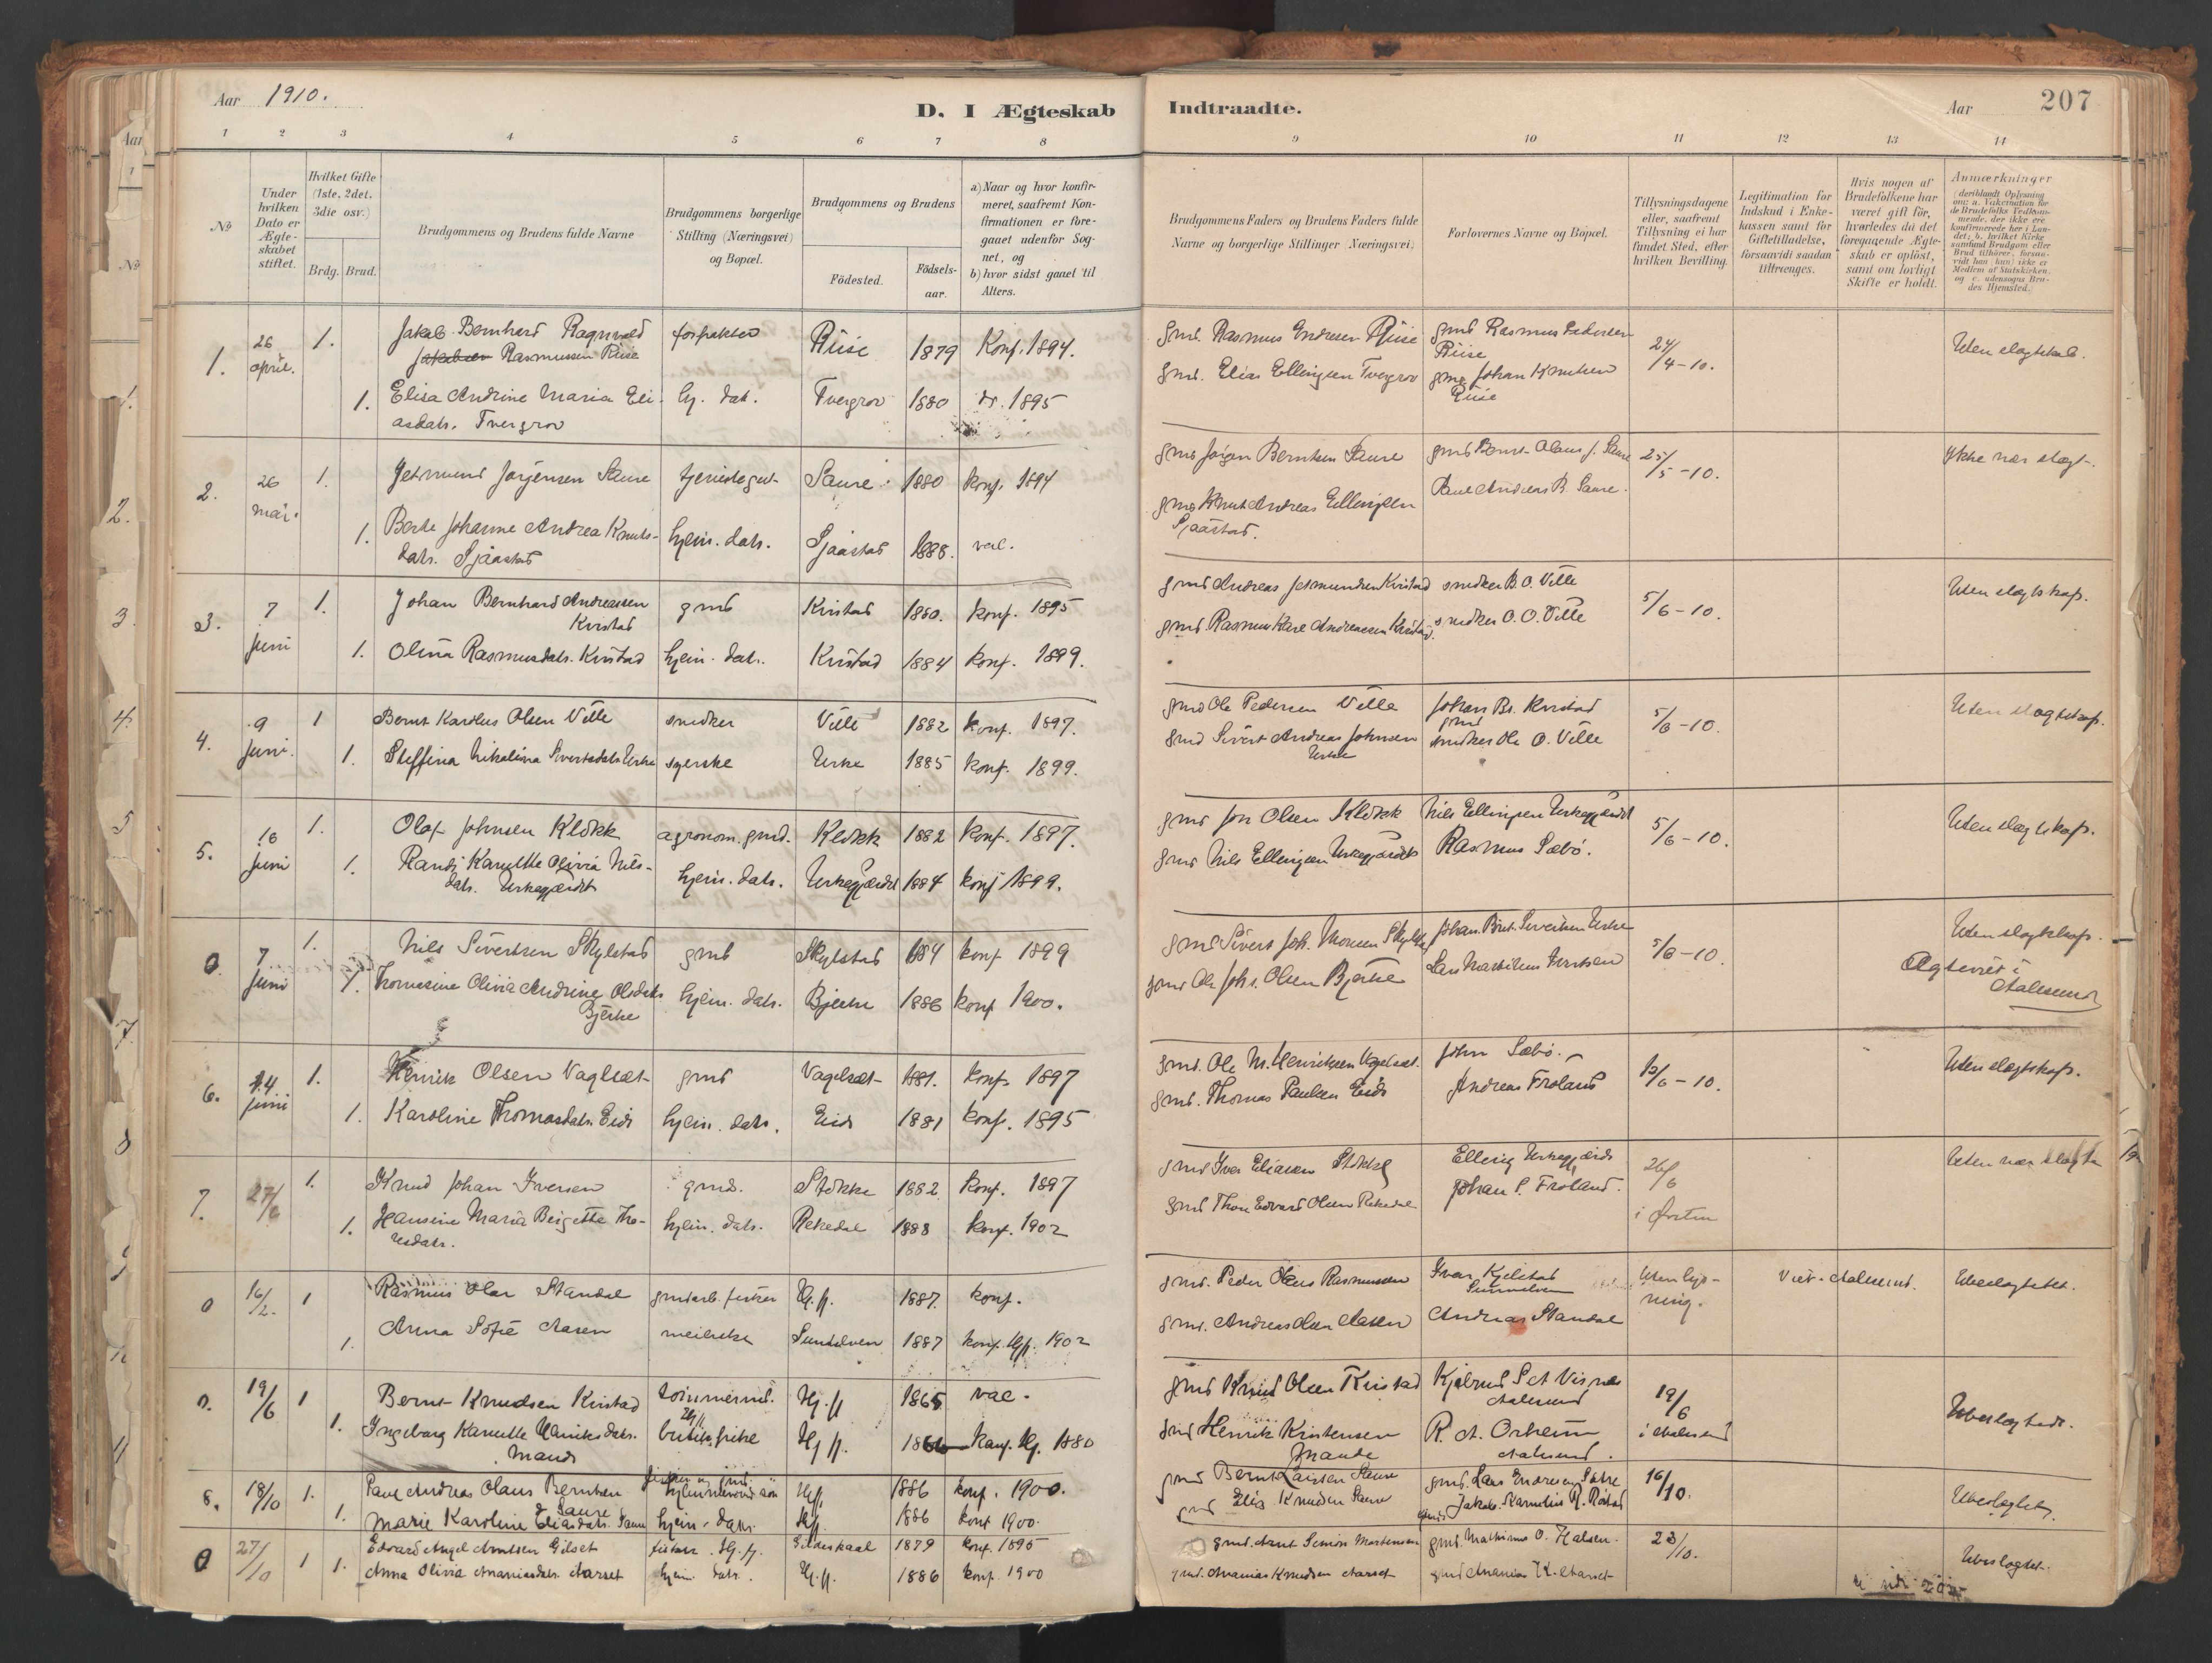 Aar 1910.
D. I Ægteskab Indtraadte.
Aar 207
1 2 3 4 5 6 7 8 9 10 11 12 13 14
No
Under hvilken Dato er Ægteskabet stiftet.
Hvilket Gifte (1ste, 2det, 3die osv.)
Brdg. Brud.
Brudgommens og Brudens fulde Navne
Brudgommens borgerlige Stilling (Næringsvei) og Bopæl.
Brudgommens og Brudens
Födested.
Födselsaar.
a) Naar og hvor konfirmeret, saafremt Konfirmationen er foregaaet udenfor Sognet, og
b) hvor sidst gaaet til Alters.
Brudgommens Faders og Brudens Faders fulde Navne og borgerlige Stillinger (Næringsvei)
Forlovernes Navne og Bopæl.
Tillysningsdagene eller, saafremt Tillysning ei har fundet Sted, efter hvilken Bevilling.
Legitimation for Indskud i Enkekassen samt for Giftetilladelse, forsaavidt saadan tiltrænges.
Hvis nogen af Brudefolkene har været gift før, hvorledes da det foregaaende Ægteskab er oplöst, samt om lovligt Skifte er holdt.
Anmærkninger
1. 26 april. 1. Jakob Bernhard Ragnvald Rasmussen Riise Riise 1879 Konf. 1894. gmd. Rasmus Endresen Riise gmd Rasmus Pedersen Riise 24/4-10. Uden slagtskab.
1. Elisa Andrine Maria Eliasdatr. Tvergrov hj. dat. Tvergrov 1880 do. 1895 gmd. Elias Ellingsen Tvergrov gmd Johan Knutsen Riise
2. 26 mai. 1. Jetmund Jørgensen Saure tjenestegut Saure 1880 konf. 1894 gmd Jørgen Berntsen Saure gmd Bernt Olaus J. Saure 25/5-10. Ikke nær slægt.
1. Berte Johanne Andrea Knutsdatr. Sjaastad hjem. datr. Sjaastad 1888. vac. gmd Knut Andreas Ellingsen Sjaastad. Paul Andreas B. Saure.
3. 7 juni 1. Johan Bernhard Andreassen Kvistad gmd Kvistad 1880. konf. 1895 gmd Andreas Jetmundsen Kvistad snedker B. O. Ville 5/6-10. Uden slagtskap.
1. Olina Rasmusdatr. Kvistad hjem. datr. Kvistad 1884 konf. 1899. gmd. Rasmus Kare Andreassen Kvistad. snedker O. O. Ville
4. 9 juni. 1 Bernt Karolus Olsen Ville snedker Ville 1882 konf. 1897. gmd Ole Pedersen Ville Johan Br. Kvistad gmd 5/6-10. Uden slagtskap.
1. Steffina Nikolina Sivertsdatr Urke syerske Urke 1885 konf. 1899. gmd Sivert Andreas Johnsen Urke snedker Ole O. Ville
5. 16 juni 1. Olaf Johnsen Klokk agronom. gmd. Klokk 1882 konf. 1897. gmd Jon Olsen Klokk Nils Ellingsen Urkegjærdet 5/6-10. Uden slagtskap.
1. Randi Kanutte Olivia Nilsdatr. Urkegjærdet hjem. datr. Urkegjærdet 1884 konf 1899. gmd Nils Ellingsen Urkegjærdet Rasmus Sæbø.
0. 7 juni 1. Nils Sivertsen Skylstad gmd Skylstad 1884 konf 1899 gmd Sivert Joh. Thomsen Skylstad Johan Brnt. Sivertsen Urke 5/6-10. Uden slagtskap.
1. Thomasine Olivia Andrine Olsdatr Bjerke hjem. datr. Bjerke 1886 konf 1900. gmd Ole Johs. Olsen Bjerke Agteviet i Aalesund
6. 14 juni 1. Henrik Olsen Vaglsæt gmd Vagelsæt 1881. konf. 1897 gmd. Ole M. Henriksen Vagelsæt. John Sæbø. 12/6-10. Uden slægtskap.
1. Karoline Thomasdatr. Eid hjem. datr. Eide 1881 konf. 1895 gmd. Thomas Paulsen Eide Andreas Froland
7. 27/6 1. Knud Johan Iversen gmd. Støkke 1882. konf. 1897 gmd Iver Eliasen Støkke Elling Urkegjærde 26/6 i Ørsten Uden nær slægt
1. Hansine Maria Birgitte Thoresdatr. hjem. datr. Rekedal 1888 konf. 1902 gmd Thore Edvard Olsen Rekedal Johan P. Froland.
0 16/2. 1 Rasmus Olav Standal gmdarb. fisker Hj.fj. 1887. konf. gmd. Peder Claus Rasmussen Ivar Kjelstad Sunnelven Uten lysning. Viet. Aalesund. Ubeslagtet.
1. Anna Sofie Aasen meierske Sunelven 1887 konf. Hjf. 1902 gmd. Andreas Olsen Aasen Andreas Standal
0. 19/6 1 Bernt Knudsen Kvistad tømmermd. Hj.fj 1865. vac. gmd Knud Olsen Kvistad Kjøbmd S. A. Visnes Aalesund 19/6 i Aalesund Ubeslægtede.
1. Ingeborg Kanutte Henriksdatr. Mande Hj fj. 1866 konf. Hj. 1880 gmd Henrik Kristensen Mande R. A. Orheim Aalesund.
8. 18/10 1. Paul Andreas Olaus Berntsen Saure Hjfj. 1886 konf. 1900. gmd Bernt Larsen Saure gmd. Lars Endresen Sætre 16/10. Ubeslægtet.
1. Marie Karoline Eliasdatr. Saure hjem. datr. Hjfj. 1886 konf 1900. gmd Elias Knudsen Saure gmd Jakob Kornelius R. Røstad
0 27/10 1 Edvard Angel Arntsen Gilset fisker. Hj.fj. Gildeskaal 1879 konf. 1895 gmd. Arnt Simon Mortensen gmd. Mathias O. Halsen. 23/10. Ubeslægtet.
1. Anna Olivia Ananiasdatr. Aarset hjem. datr. Hj.fj. 1886 konf. 1900 gmd. Ananias Knudsen Aarset gmd Ananias K. Aarset